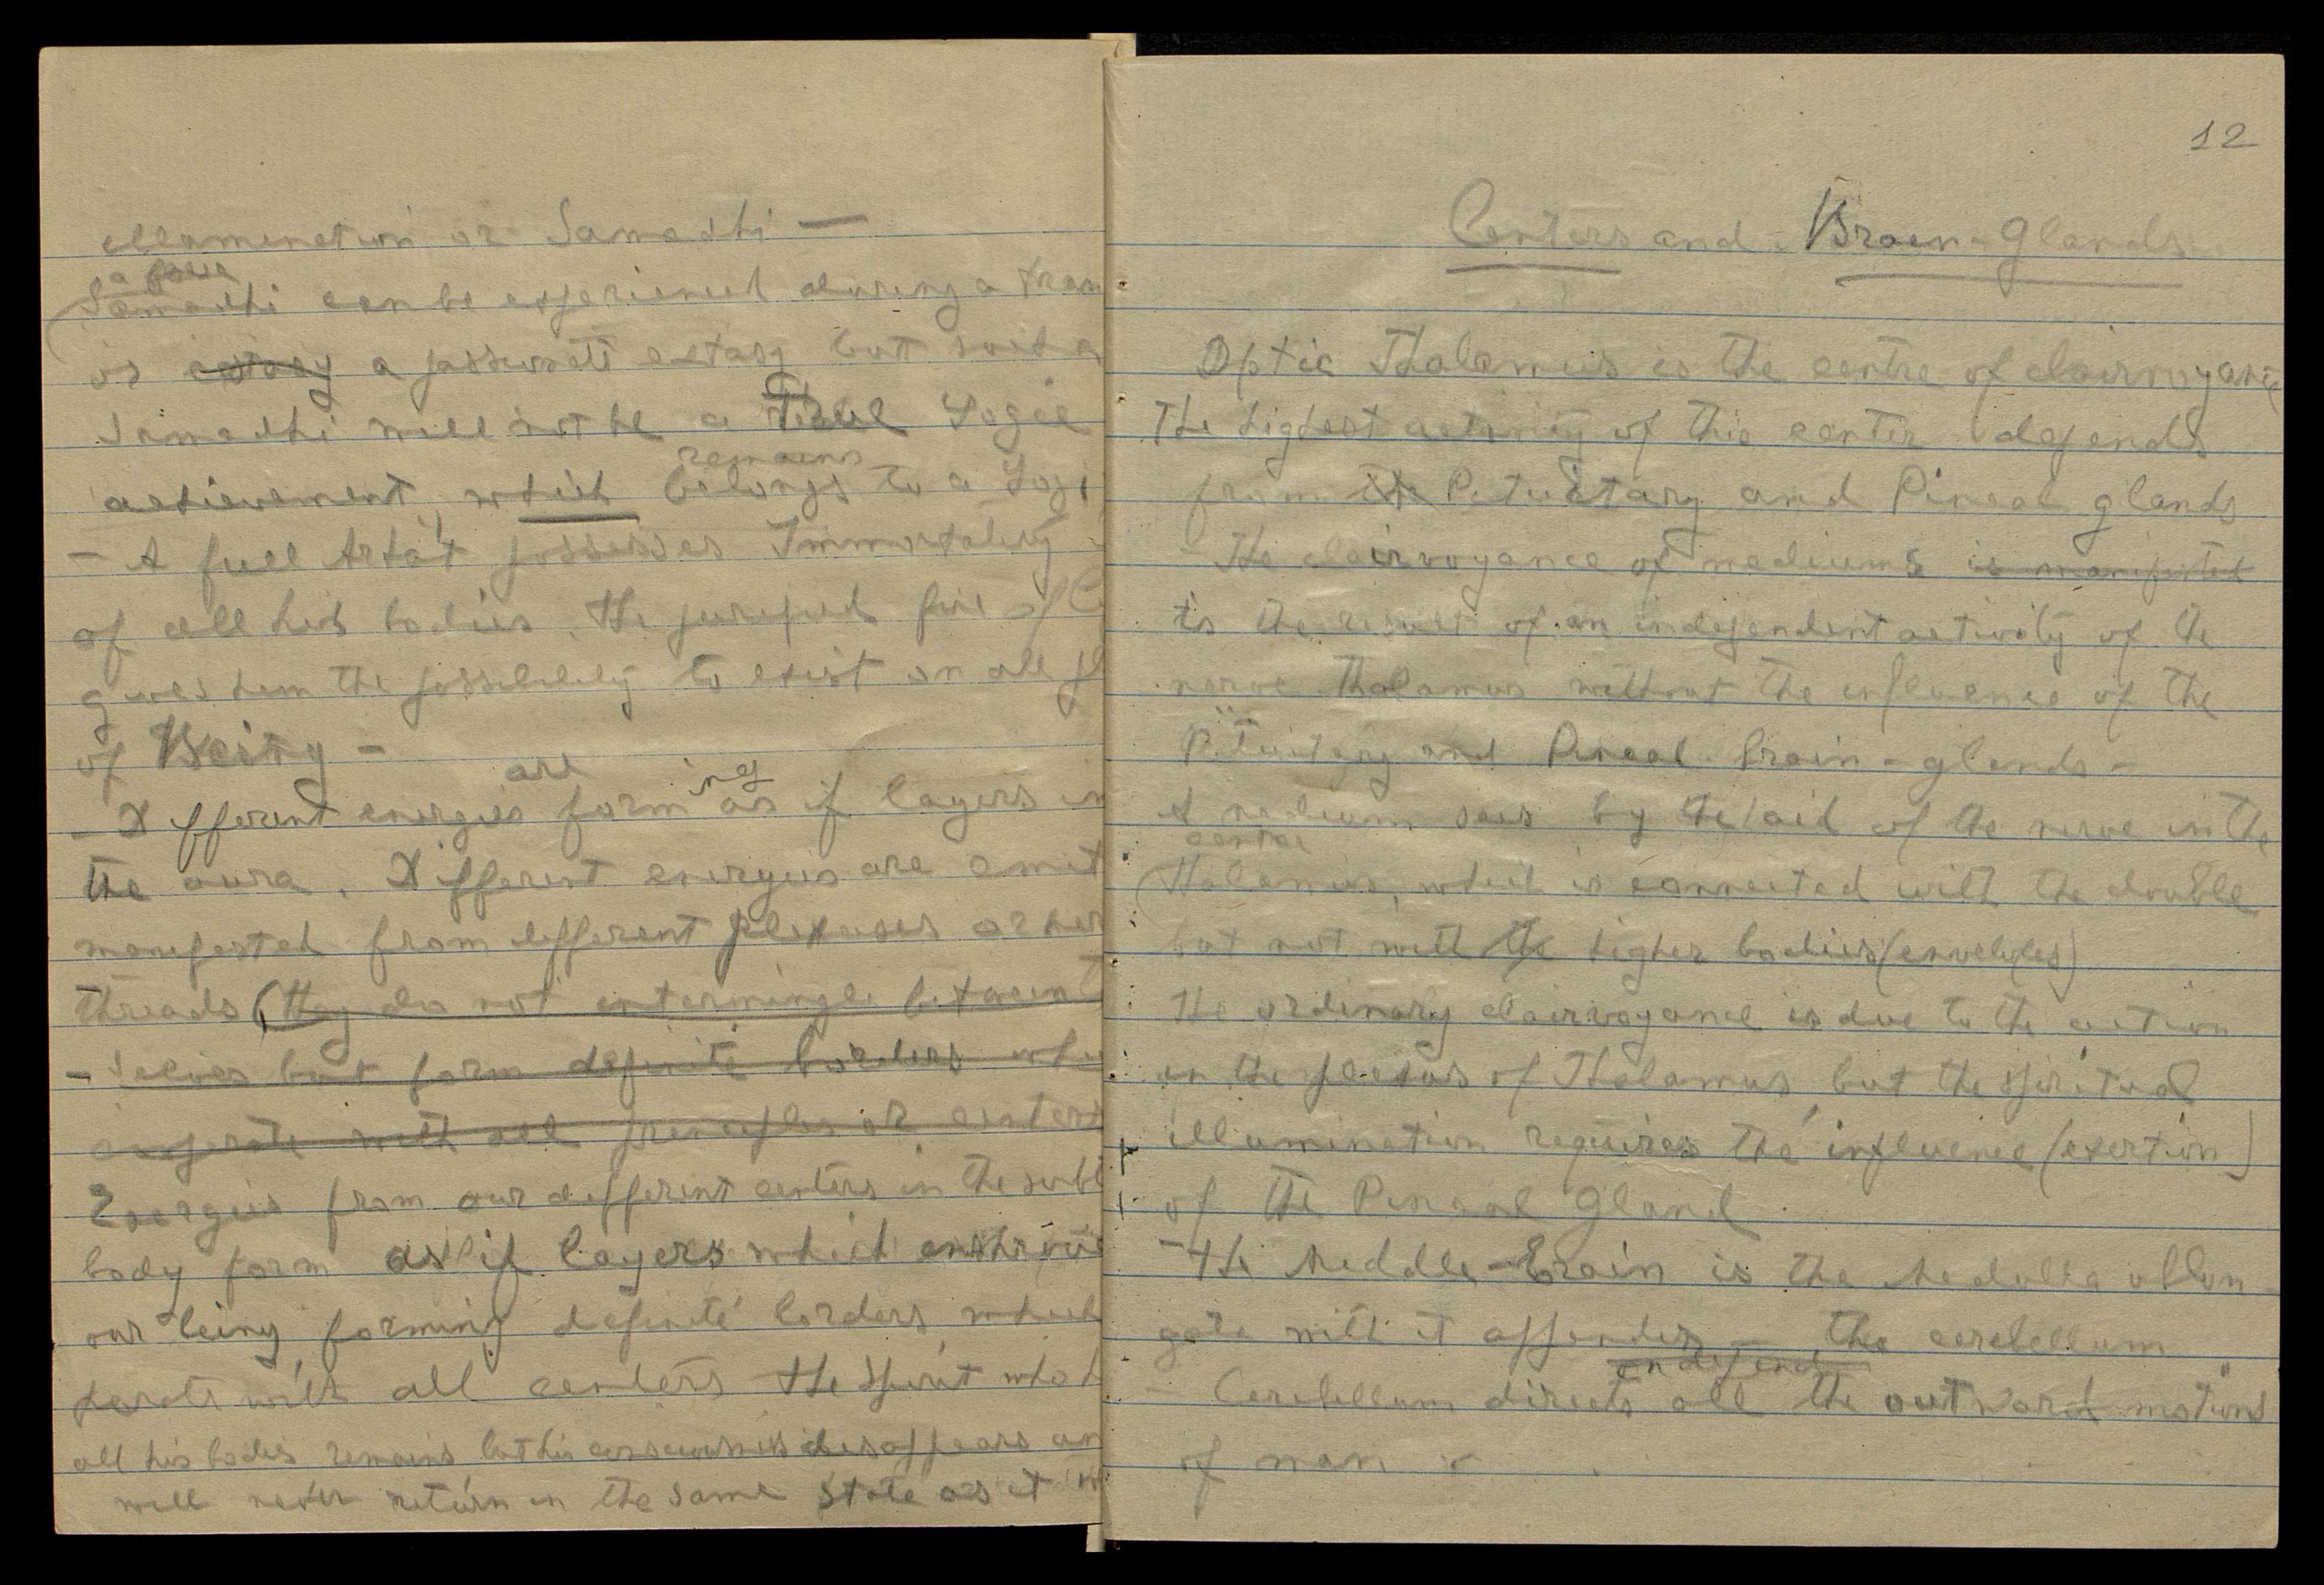 illumination or Samadhi —
a
Samadhi can be experienced during a tran
or extasy a passionate extasy but such a
Samadhi will not be a True Yogic
remains
achievement, which belongs to a Yogi
- A full Arhat possesses Immortality
of all his bodies. The purified fire of
gives him the possibility to exist on all pl
of Being -
are ing
- Different energies form as if layers in
the aura. Different energies are emit
manifested from different plexuses or ner
threads (they do not intermingle between t
- selves but form definite borders whi
with all principles or centers
Energies from our different centers in the subt
body form as if layers which enshroud
our being, forming definite borders, which
perate with all centers the Spirit who h
all his bodies remains but his consciousness disappears an
will never return in the same state as it w
12
Centers and - Brain - Glands
Optic Thalamus is the centre of clairvoyance
The highest activity of this center depends
from the Pituitary and Pineal glands
- The clairvoyance of mediums is manifested
is the result of an independent activity of the
nerve Thalamus without the influence of the
Pituitary and Pineal Brain - glands -
A medium sees by the aid of the nerve in the
center
(Thalamus, which is connected with the double
but not with the higher bodies (envelopes)
The ordinary clairvoyance is due to the action
on the plexus of Thalamus, but the spiritual
illumination requires the influence (exertion)
of the Pineal Gland
- The Middle - Brain is the Medulla oblon
gata with it appendix - the cerebellum
independ
- Cerebellum directs all the outward motions
of man